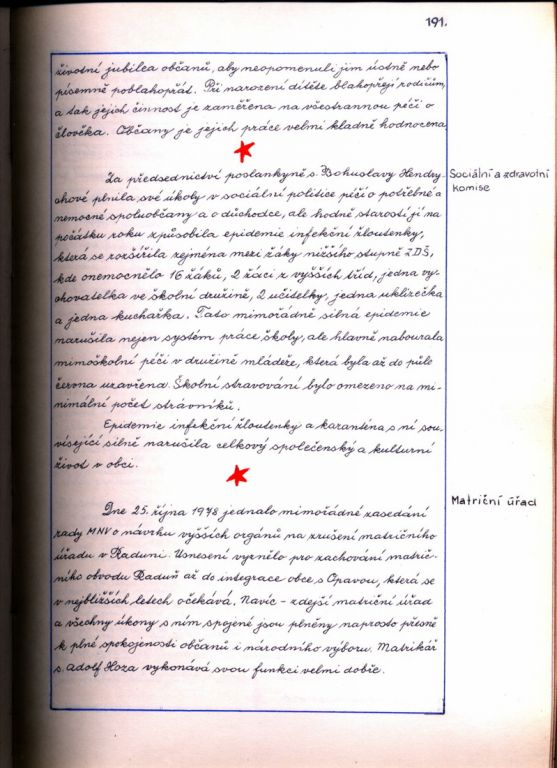 191.
životní jubilea občanů, aby neopomenuli jim ústně nebo
písemně poblahopřát. Při narození dítěte blahopřejí rodičům,
a tak jejich činnost je zaměřena na všestrannou péči o
člověka. Občany je jejich práce velmi kladně hodnocena
Za předsednictví poslankyně s. Bohuslavy Hendry-
chové plnila své úkoly v sociální politice péčí o potřebné a
nemocné spoluobčany a o důchodce, ale hodně starostí jí na
počátku roku způsobila epidemie infekční žloutenky,
která se rozšířila zejména mezi žáky nižšího stupně ZDŠ,
kde onemocnělo 16 žáků, 2 žáci z vyšších tříd, jedna vy-
chovatelka ve školní družině, 2 učitelky, jedna uklizečka
a jedna kuchařka. Tato mimořádně silná epidemie
narušila nejen systém práce školy, ale hlavně nabourala
mimoškolní péči v družině mládeže, která byla až do půle
června uzavřena. Školní stravování bylo omezeno na mi-
nimální počet strávníků.
Epidemie infekční žloutenky a karanténa s ní sou-
visející silně narušila celkový společenský a kulturní
život v obci.
Sociální a zdravotní
komise
Dne 25. října 1978 jednalo mimořádné zasedání
rady MNV o návrhu vyšších orgánů na zrušení matričního
úřadu v Raduni. Usnesení vyznělo pro zachování matrič-
ního obvodu Raduň až do integrace obce s Opavou, která se
v nejbližších letech očekává. Navíc - zdejší matriční úřad
a všechny úkony s ním spojené jsou plněny naprosto přesně
k plné spokojenosti občanů i národního výboru. Matrikář
s. Adolf Hoza vykonává svou funkci velmi dobře.
Matriční úřad